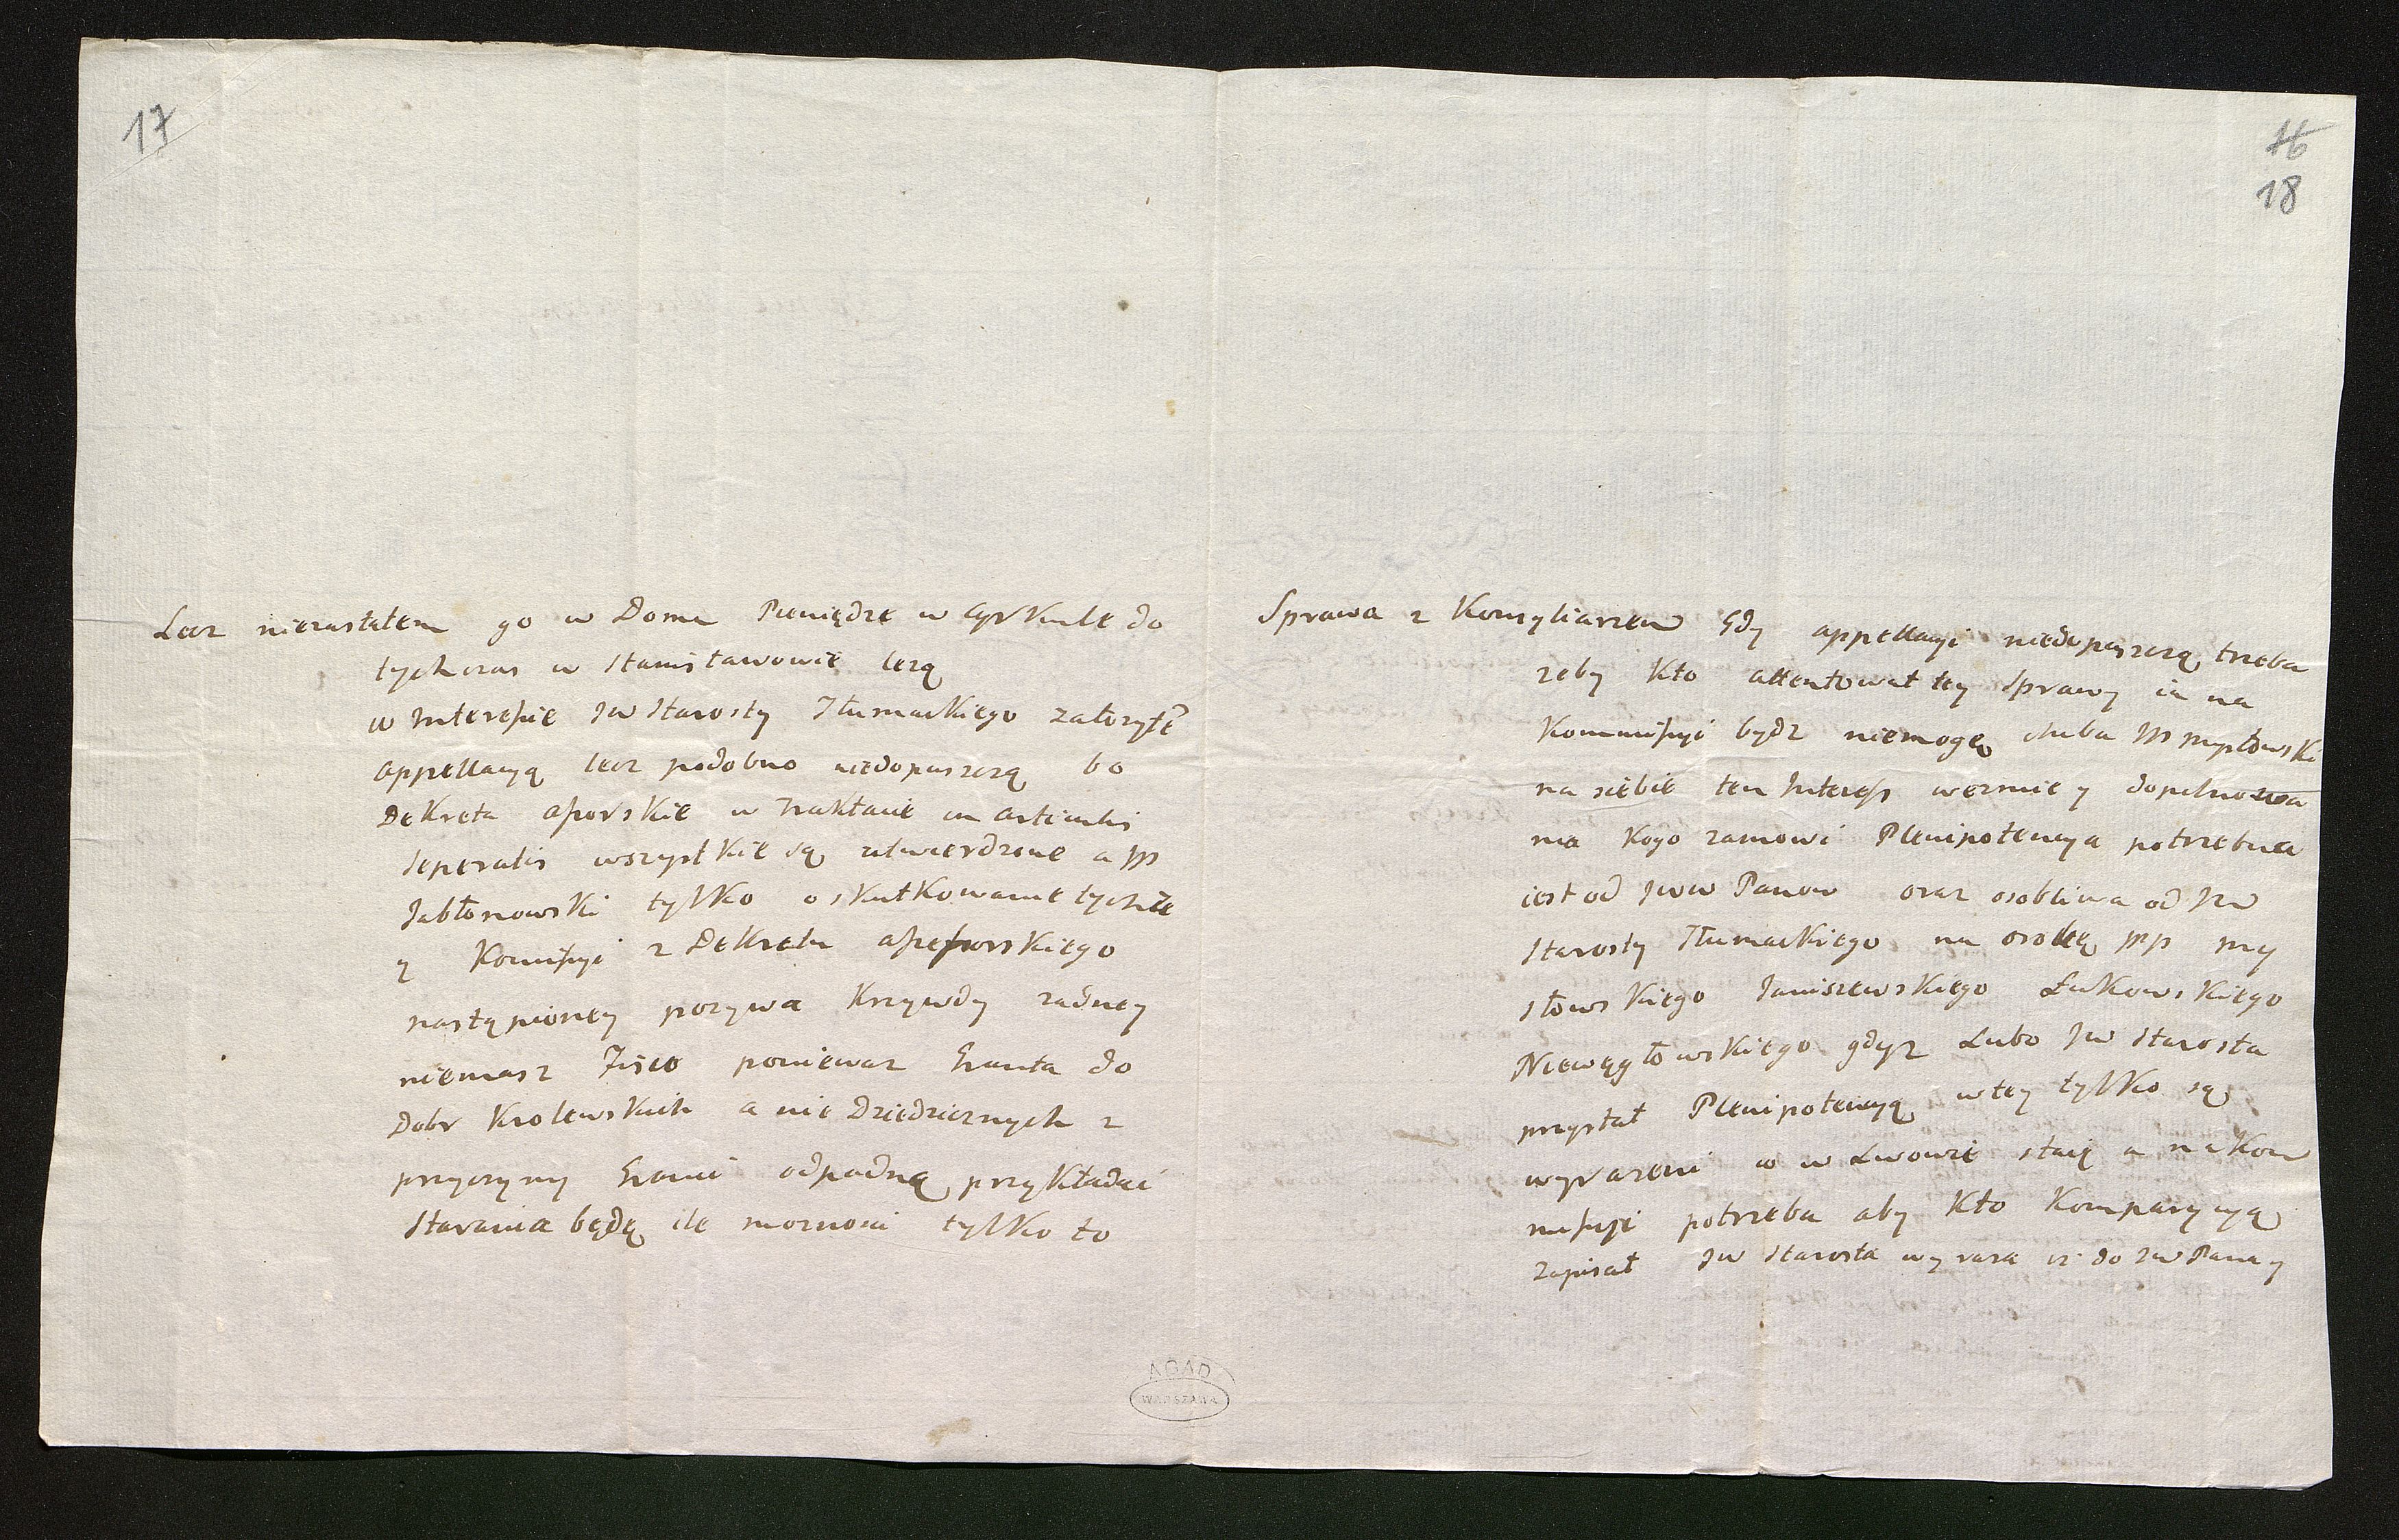 17
Lecz niezastałem go w Domu Pieniądze w Cyrkule do
tychczas w Stanisławowie leżą
w Interessie JW Starosty Tłumackiego założyłẽ
appellacyą lecz podobno niedopuszczą bo
Dekreta assorskie w Traktacie in Articulis
Seperatis wszystkie są utwierdzone a JP
Jabłonowski tylko o skutkowanie tychże
y Komissyi z Dekretu assessorskiego
nastąpioney pozywa Krzywdy zadney
niemasz poniewaz Granta do
Dobr Krolewskich a nie Dziedzicznych z
przyczyny Granic odpadną przykładać
Starania będę ile moznosci tylko to
16
18
Sprawa z Konsyliarzem Gdy appellacyi niedopuszczą trzeba
zeby Kto attentował tey Sprawy ia na
Kommissyi bydz niemogę chuba JP Mysłowski
na siebie ten Interess wezmie y dopilnowa
nia Kogo zamowi Plenipotencya potrzebna
iest od JWW Panow oraz osobliwa od JW
Starosty Tłumackiego na osobę JPP My
słowskiego Janiszewskiego Łukowskiego
Niewęgłowskiego gdyz Lubo JW Starosta
przysłał Plenipotencyą w tey tylko są
wyrazeni co w Lwowie staią a na Kom
missyi potrzeba aby Kto Komparycyą
zapisał JW Starosta wyraza iz do JW Pana y
AGAD
WARSZAWA